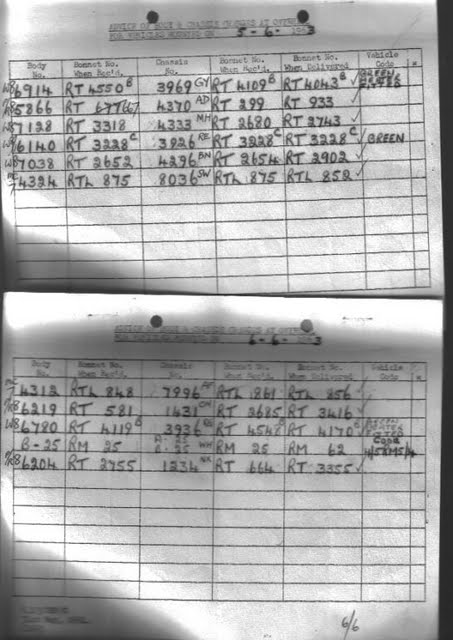 ADVICE OF BODY & CHASSIS CHANGES AT
FOR VEHICLES MOUNTED ON 5-6-1963
Body No. Bonnet No. When Rec'd. Chassis No. Bonnet No. When Rec'd. Bonnet No. When Delivered Vehicle Code
6914 RT 4550 B 3969 GY RT 4109 B RT 4043 B ✓ GREEN
5866 RT 4370 AD RT 299 RT 933 ✓
7128 RT 3318 4333 MH RT 2680 RT 2743 ✓
6140 RT 3228 C 3926 RE RT 3228 C RT 3228 C ✓ GREEN
7038 RT 2652 4296 BN RT 2654 RT 2902 ✓
4324 RTL 875 8036 SW RTL 875 RTL 852 ✓
ADVICE OF BODY & CHASSIS CHANGES AT
FOR VEHICLES MOUNTED ON 6-6-1963
Body No. Bonnet No. When Rec'd. Chassis No. Bonnet No. When Rec'd. Bonnet No. When Delivered Vehicle Code
4312 RTL 848 7996 RTL 861 RTL 856 ✓
6219 RT 581 1431 RT 2685 RT 3416 ✓
6780 RT 4119 B 3936 RT 4548 RT 4170 B
B-25 RM 25 RM 25 RM 62 CODE
6204 RT 2755 1234 NX RT 664 RT 3355 ✓
6/6